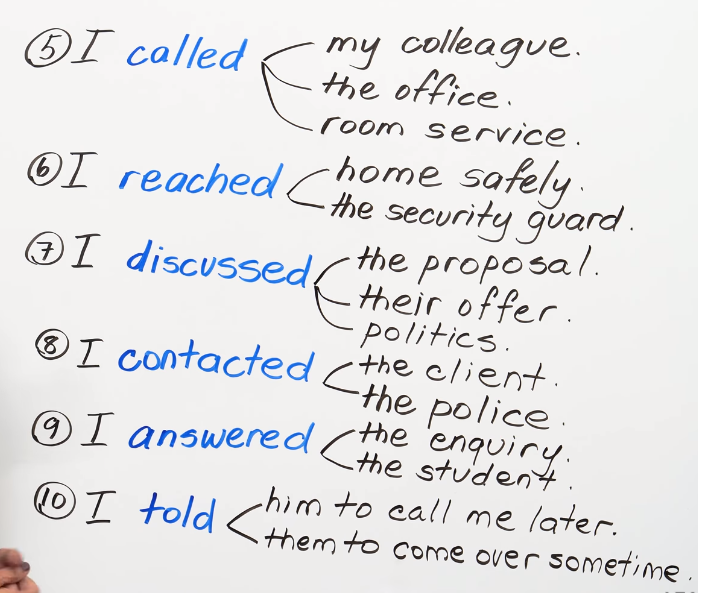 ⑤ I called my colleague.
the office.
room service.
⑥ I reached home safely.
the security guard.
⑦ I discussed the proposal.
their offer.
politics.
⑧ I contacted the client.
the police.
⑨ I answered the enquiry.
the student.
⑩ I told him to call me later.
them to come over sometime.